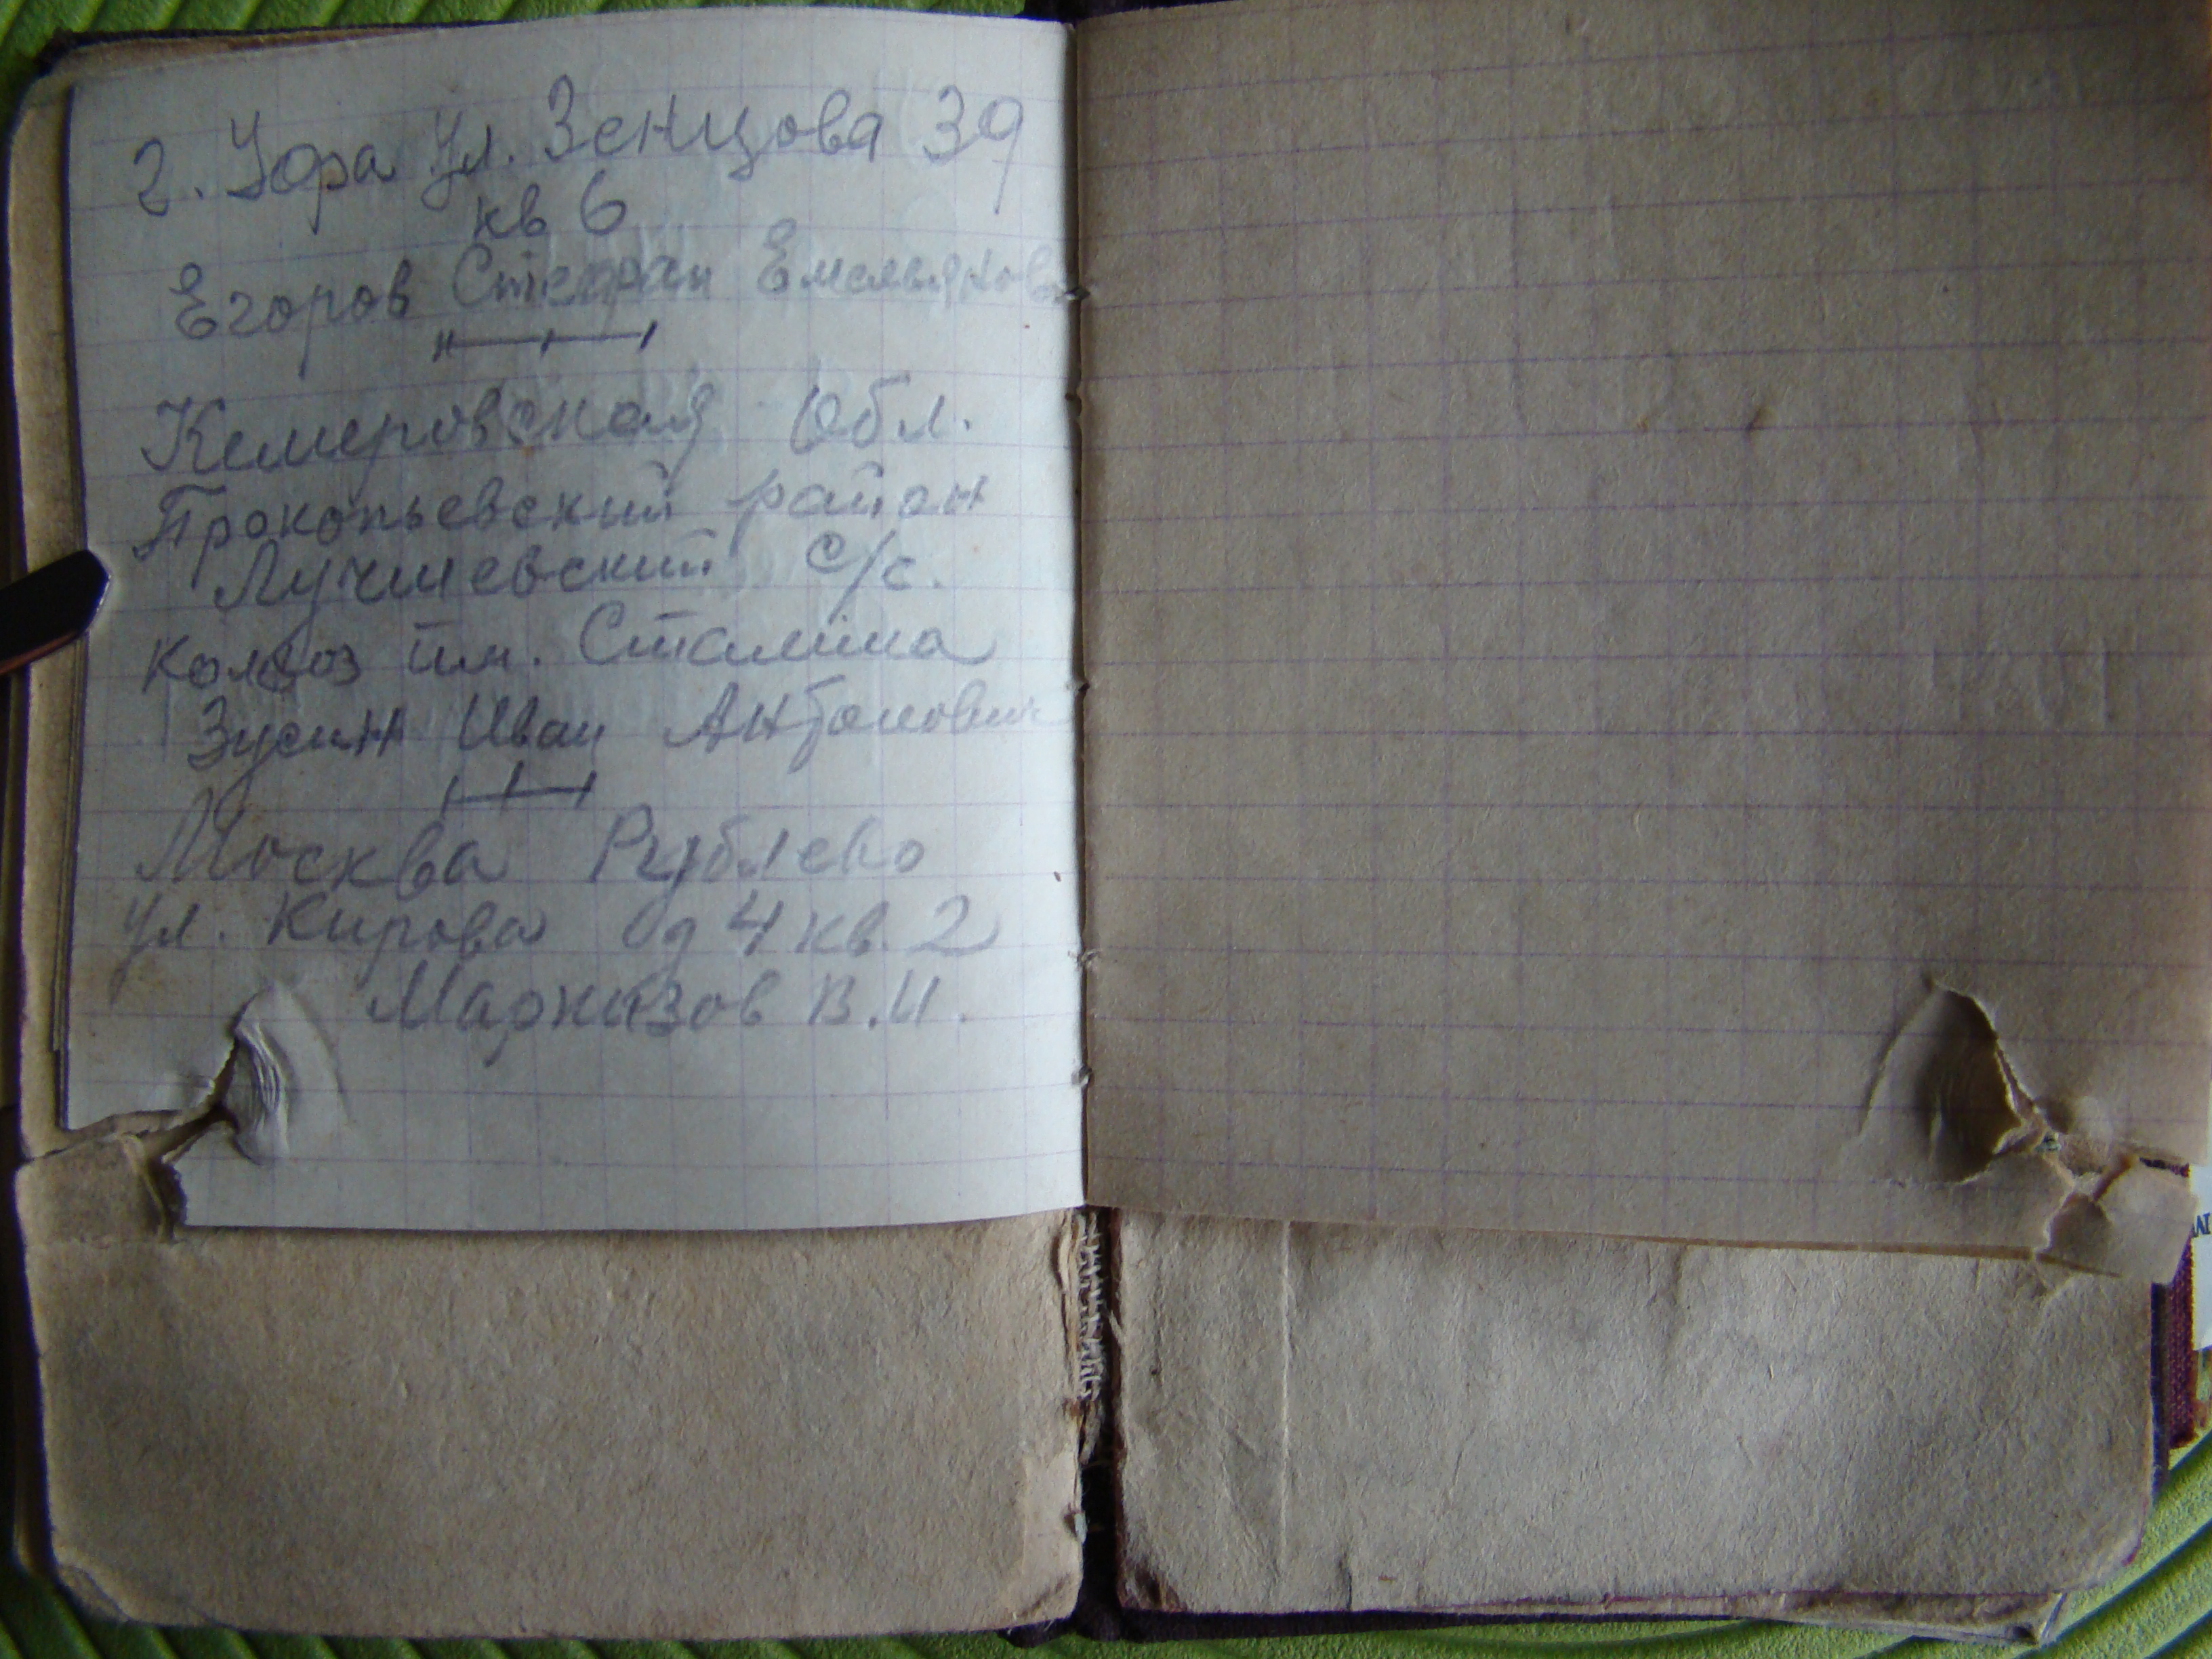 г. Уфа ул. Зенцова 39
кв 6
Егоров Стефан Емельянов
Кемеровская Обл.
Прокопьевский район
Лучшевский с/с.
колхоз им. Сталина
Зусин Иван Антонович
Москва Рублево
ул. Кирова д 4 кв. 2
Маркизов В.И.